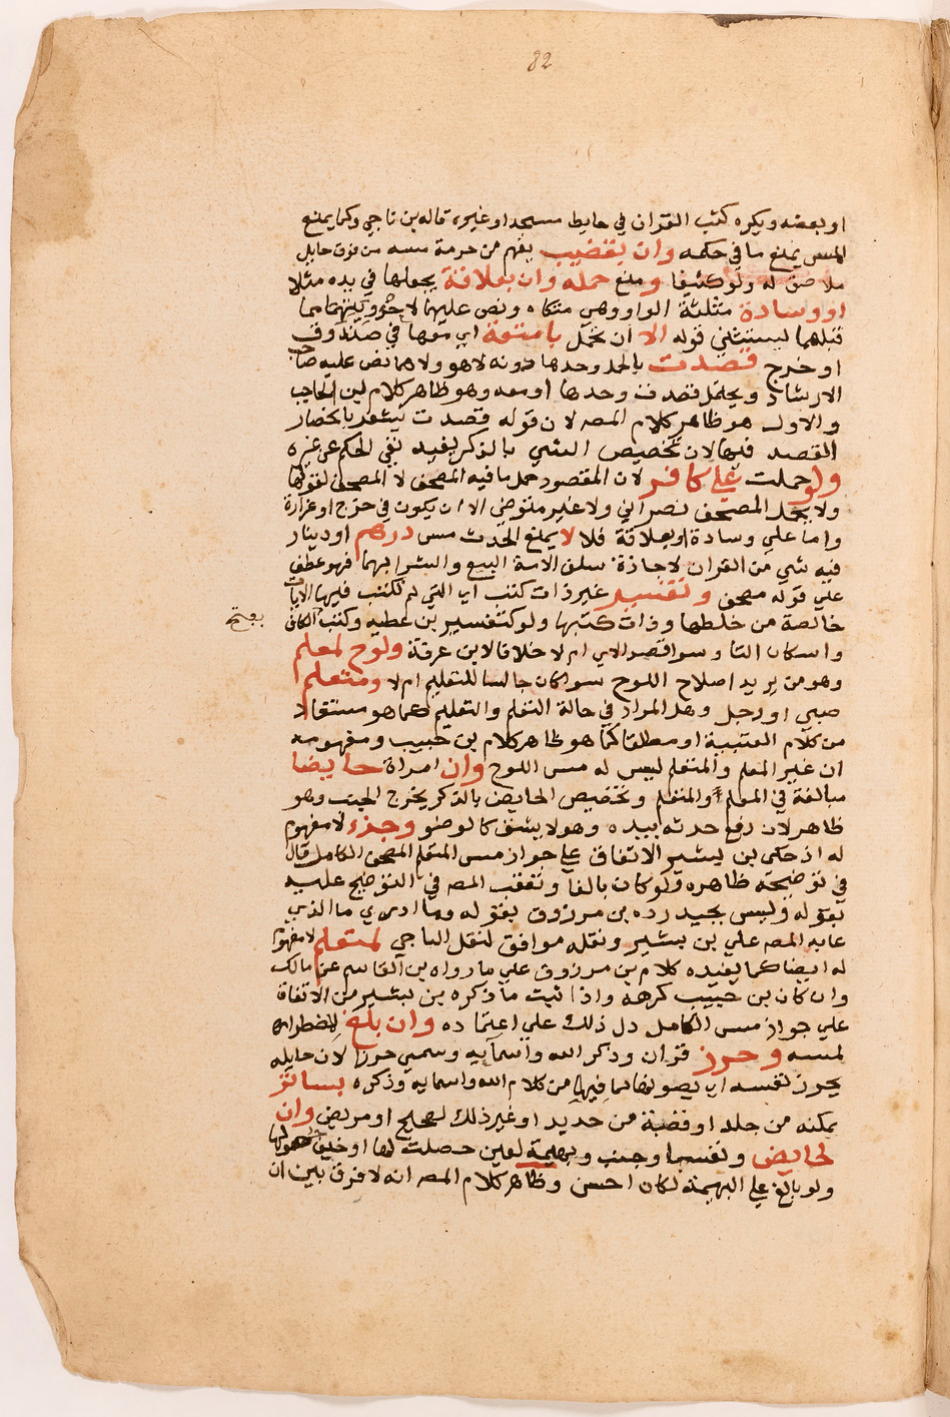 82
او بعضه ويكره كتب القران في حايط مسجد او غيره قاله بن ناجي وكما يمنع
المس يمنع ما في حكمه وان بقضيب يفهم من حرمة مسه من فوق حايل
ملاصق له ولو كثيفا ومنع حمله وان بعلاقة يجعلها في يده مثلا
او وسادة مثلثة الواو وهي متكاه ونص عليهما
قبلهما ليستثني قوله الا ان تحمل بامتعة اي معها في صندوق
او خرج قصدت بالحمل وحدها دونه لا هو ولا هما نص عليه صاحب
الارشاد ويحتمل قصدت وحدها او معه وهو ظاهر كلام بن الحاجب
والاول هو ظاهر كلام المصـ لان قوله قصدت يشعر بانحصار
القصد فيها لان تخصيص الشي بالذكر يفيد نفي الحكم عن غيره
ولو حملت علي كافر لان المقصود حمل ما فيه المصحف لا المصحف لقولها
ولا يحمل المصحف نصراني ولا غير متوضي الا ان يكون في خرج او غرارة
واما علي وسادة او بعلاقة فلا لا يمنع الحدث مس درهم او دينار
فيه شي من القران لاجازة سلف الامة البيع والشرا بهما فهو عطف
علي قوله مصحف وتفسير غير ذات كتب اي التي لم تكتب فيها الايات
خالصة من خلطها وذات كتبها ولو كتفسير بن عطيه وكتب الكافي
بفتح
واسكان التا وسوا قصد الاي ام لا خلافا لابن عرفة ولوح لمعلم
وهو من يريد اصلاح اللوح سوا كان جالسا للتعليم ام لا ومتعلم
صبي او رجل وهل المراد في حالة التعلم والتعليم كما هو مستفاد
من كلام العتبية او مطلقا كما هو ظاهر كلام بن حبيب ومفهومه
ان غير المعلم والمتعلم ليس له مس اللوح وان امراة حايضا
مبالغة في المعلم والمتعلم وتخصيص الحايض بالذكر يخرج الجنب وهو
ظاهر لان رفع حدثه بيده وهو لا يشق كالوضو وجزء لا مفهوم
له اذ حكي بن بشير الاتفاق علي جواز مس المتعلم المصحف الكامل قال
في توضيحه ظاهره ولو كان بالغا وتعقب المصـ في التوضيح عليه
بقوله وليس بجيد رده بن مرزوق بقوله وما ادري ما الذي
عابه المصـ علي بن بشير ونقله موافق لنقل الباجي لمتعلم لا مفهوم
له ايضا كما يفيده كلام بن مرزوق علي ما رواه بن القاسم عن مالك
وان كان بن حبيب كرهه واذا ثبت ما ذكره بن بشير من الاتفاق
علي جواز مس الكامل دل ذلك علي اعتماده وان بلغ لاضطراره
لمسه وحرز قران وذكر الله واسمايه وسمي حرزا لان حامله
يحرز نفسه اي يصونها بما فيها من كلام الله واسمايه وذكره بساتر
يمكنه من جلد او قضبة من حديد او غير ذلك لصحيح او مريض وان
لحايض ونفسا وجنب وبهيمة لعين حصلت لها او خيف حصولها
ولو بالغ علي البهيمة لكان احسن وظاهر كلام المصـ انه لا فرق بين ان